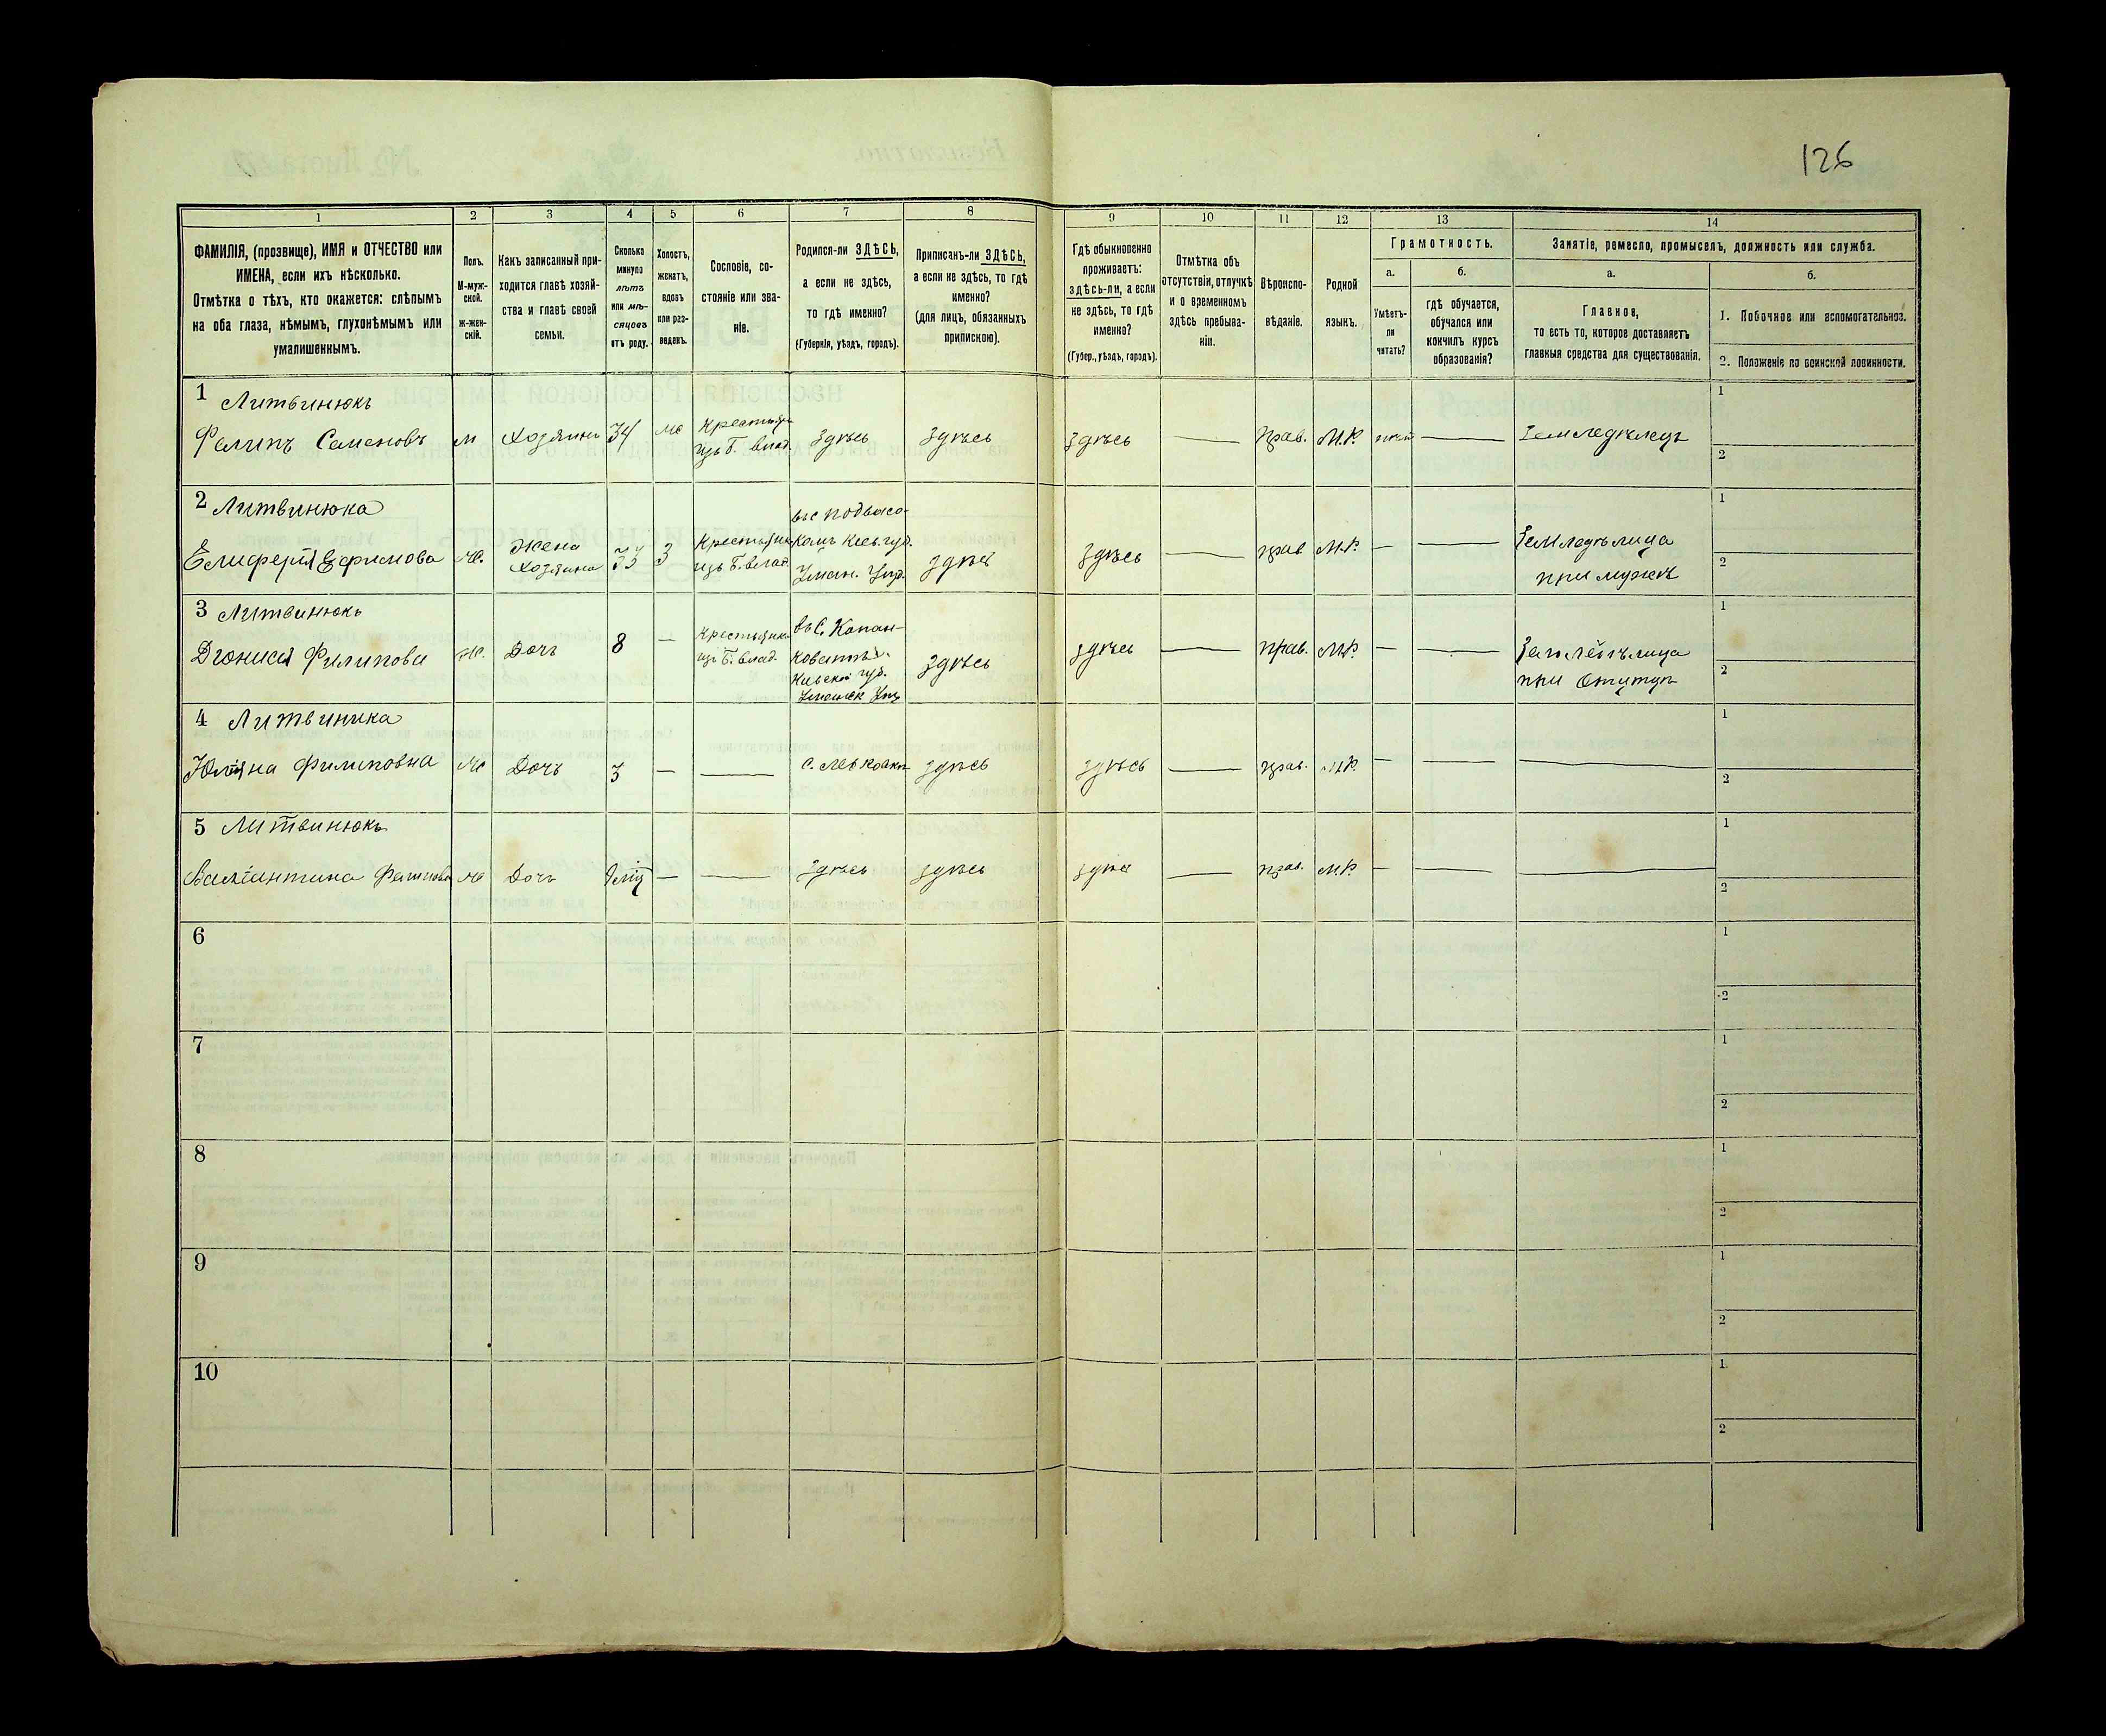 126
1
2
3
4
5
6
7
8
9
10
11
12
13
14
ФАМИЛІЯ, (прозвище), ИМЯ и ОТЧЕСТВО или
ИМЕНА, если ихъ нѣсколько.
Отмѣтка о тѣхъ, кто окажется: слѣпымъ
на оба глаза, нѣмымъ, глухонѣмымъ или
умалишеннымъ.
Полъ.
М-муж-
ской.
ж-жен-
скій.
Какъ записанный при-
ходится главѣ хозяй-
ства и главѣ своей
семьи.
Сколько
минуло
лѣтъ
или мѣ-
сяцевъ
отъ роду.
Холостъ,
женатъ,
вдовъ
или раз-
веденъ.
Сословіе, со-
стояніе или зва-
ніе.
Родился-ли ЗДѢСЬ,
а если не здѣсь,
то гдѣ именно?
(Губернія, уѣздъ, городъ).
Приписанъ-ли ЗДѢСЬ,
а если не здѣсь, то гдѣ
именно?
(для лицъ, обязанныхъ
припискою).
Гдѣ обыкновенно
проживаетъ:
здѣсь-ли, а если
не здѣсь, то гдѣ
именно?
(Губер., уѣздъ, городъ).
Отмѣтка объ
отсутствіи, отлучкѣ
и о временномъ
здѣсь пребыва-
ніи.
Вѣроиспо-
вѣданіе.
Родной
языкъ.
Грамотность.
а.
Умѣетъ-
ли
читать?
б.
гдѣ обучается,
обучался или
кончилъ курсъ
образованія?
Занятіе, ремесло, промыселъ, должность или служба.
а.
Главное,
то есть то, которое доставляетъ
главныя средства для существованія.
б.
1. Побочное или вспомогательное.
2. Положеніе по воинской повинности.
1 Литвинюкъ
Филипъ Семеновъ м Хозяинъ 34 же Крестьян
изъ б. влад. здѣсь здѣсь здѣсь — Прав. М.Р. нѣтъ — Земледѣлецъ
1
2
2 Литвинюка
Елиферія Ефимова Ж. Жена
Хозяина 33 З Крестьянка
изъ б. влад. въ с Подвысо-
комъ Кіев. губ.
Уман. Уѣз. здѣсь здѣсь — прав М.Р. — — Земледѣлица
при мужѣ
1
2
3 Литвинюкъ
Діонисія Филипова Ж. Дочь 8 — Крестьянка
изъ б. влад. въ С. Копан-
коватъ
Кіевской губ.
здѣсь здѣсь — Прав. М.Р. — — Земледѣлица
при
1
2
4 Литвинюка
Юліяна Филиповна Же Дочь 3 — — с. Левковки здѣсь здѣсь — прав. М.Р. — — —
1
2
5 Литвинюкъ
Филипова же Дочь — — Здѣсь здѣсь здѣсь — прав. М.Р. — — —
1
2
6
1
2
7
1
2
8
1
2
9
1
2
10
1
2